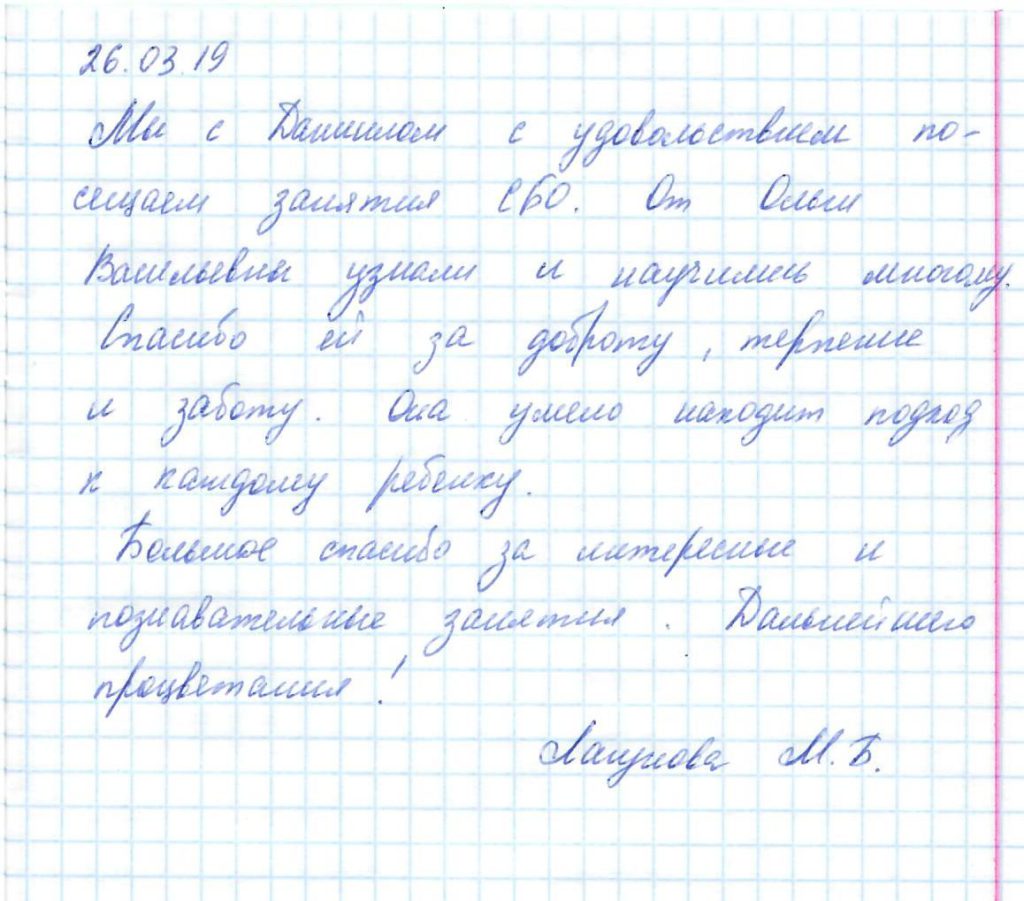 26.03.19
Мы с Даниилом с удовольствием по-
сещаем занятия СБО. От Ольги
Васильевны узнали и научились многому.
Спасибо ей за доброту, терпение
и заботу. Она умело находит подход
к каждому ребенку.
Большое спасибо за интересные и
познавательные занятия. Дальнейшего
процветания!
М.Б.